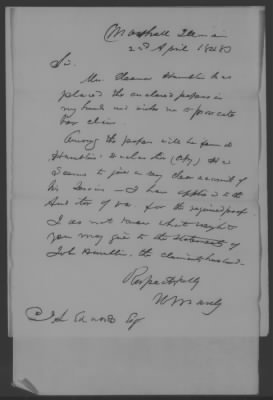 Marshall Illinois
22d April 1848
Sir.
Mrs. Eleanor Hamblin has
placed the enclosed papers in
my hands and wishes me to prosecute
her claim.
Among the papers will be found
Hamblin's Declaration (copy,) He
seems to give a very clear account of
his service — I have applied to the
Auditor of for the required proof.
I do not know what weight
you may give to the statements of
John Hamblin, the claimants husband.
Respectfully
J L Edwards Esqr